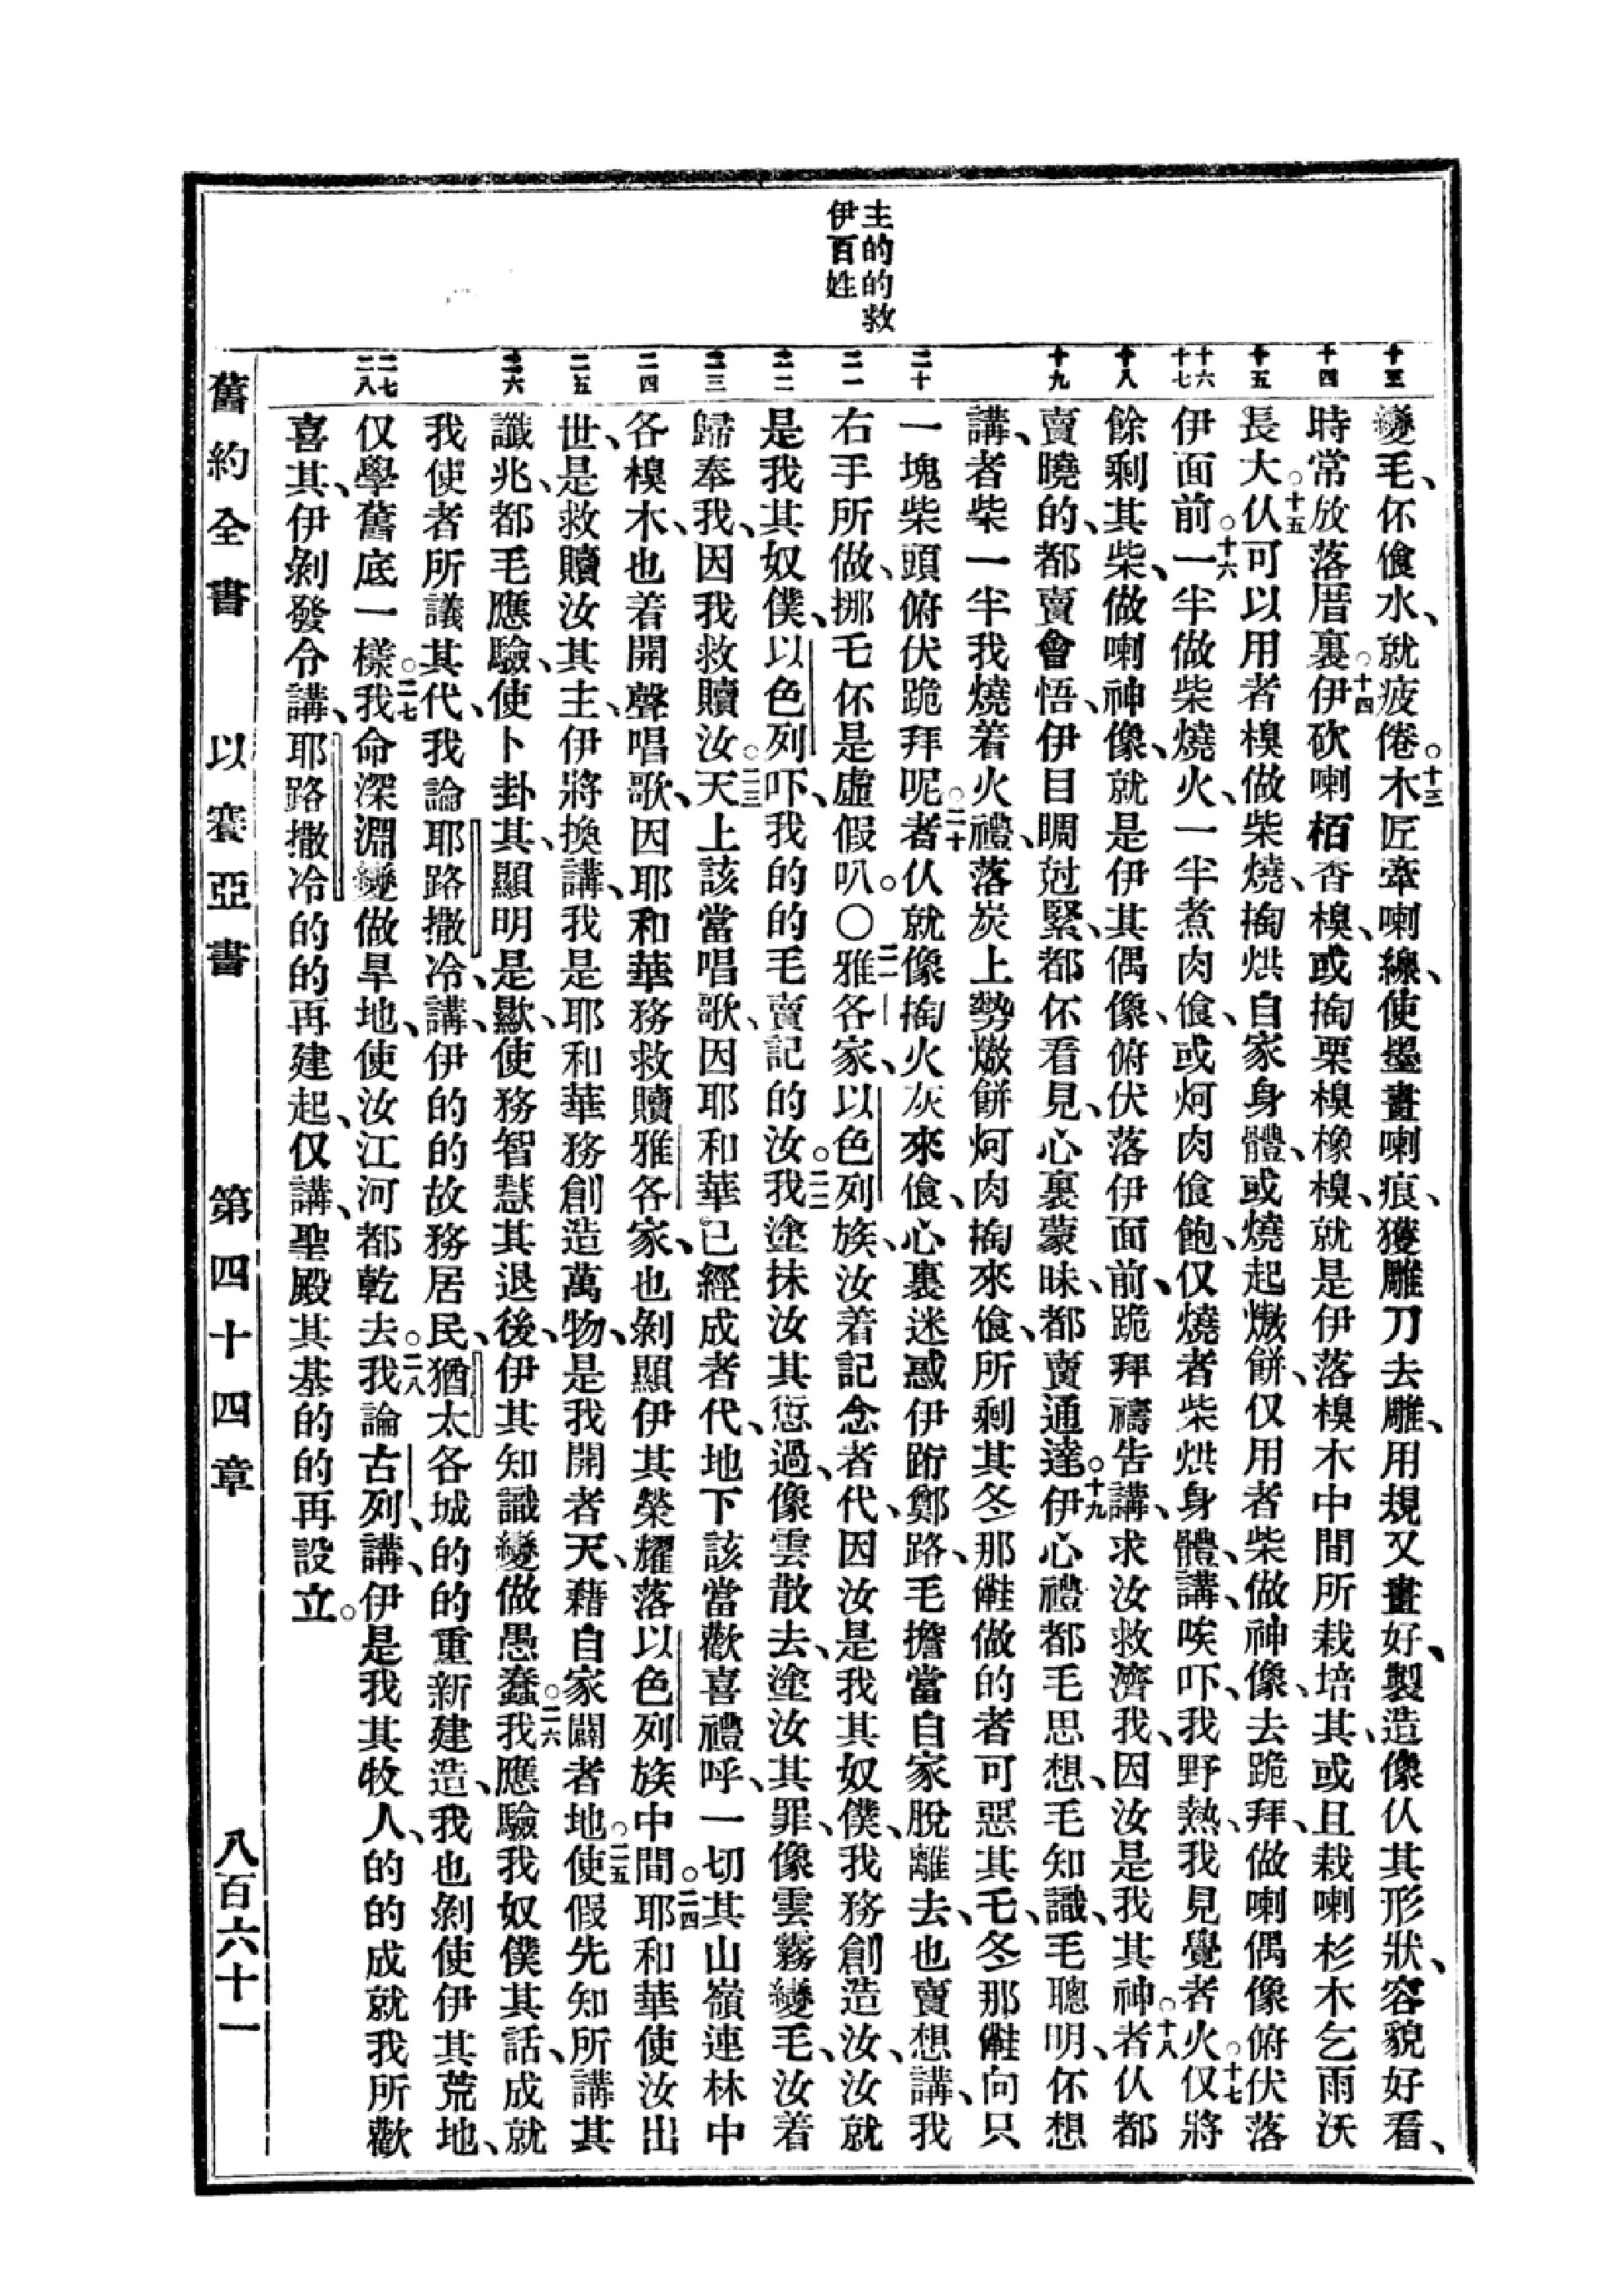 主的的救
伊百姓
十三
十四
十五
十六
十七
十八
十九
二十
二一
二二
二三
二四
二五
二六
二七
二八
變毛、伓飡水、就疲倦。十三木匠牽喇線、使墨畫喇痕、獲雕刀去雕、用規又畫好、製造像仈其形狀、容貌好看、
時常放落厝裏。十四伊砍喇栢香模、或掏栗模橡模、就是伊落模木中間所栽培其、或且栽喇杉木乞雨沃
長大。十五仈可以用者模做柴燒、掏烘自家身體、或燒起燉餅、仅用者柴做神像、去跪拜、做喇偶像俯伏落
伊面前。十六一半做柴燒火、一半煮肉飡、或炣肉飡飽、仅燒者柴烘身體、講、唉吓、我野熱、我見覺者火。十七仅將
餘剩其柴、做喇神像、就是伊其偶像、俯伏落伊面前、跪拜禱告講、求汝救濟我、因汝是我其神。十八者仈都
賣曉的、都賣會悟、伊目睭尅緊、都伓看見、心裏蒙昧、都賣通達。十九伊心禮都毛思想、毛知識、毛聰明、伓想
講、者柴一半我燒着火禮、落炭上勢燉餅炣肉掏來飡、所剩其冬那㒕做的者可惡其毛、冬那㒕向只
一塊柴頭俯伏跪拜呢。二十者仈就像掏火灰來飡、心裏迷惑伊跨鄭路、毛擔當自家脫離去、也賣想講、我
右手所做、挪毛伓是虛假叭。○二一雅各家、以色列族、汝着記念者代、因汝是我其奴僕、我務創造汝、汝就
是我其奴僕、以色列吓、我的的毛賣記的汝。二二我塗抹汝其愆過、像雲散去、塗汝其罪、像雲霧變毛、汝着
歸奉我、因我救贖汝。二三天上該當唱歌、因耶和華已經成者代、地下該當歡喜禮呼、一切其山嶺連林中
各模木、也着開聲唱歌、因耶和華務救贖雅各家、也剝顯伊其榮耀落以色列族中間。二四耶和華使汝出
世、是救贖汝其主、伊將換講、我是耶和華務創造萬物、是我開者天、藉自家闢者地。二五使假先知所講其
讖兆、都毛應驗、使卜卦其、顯明是歞、使務智慧其退後、伊其知識變做愚蠢。二六我應驗我奴僕其話、成就
我使者所議其代、我論耶路撒冷、講、伊的的故務居民、猶太各城的的重新建造、我也剝使伊其荒地、
仅學舊底一樣。二七我命深淵變做旱地、使汝江河都乾去。二八我論古列、講、伊是我其牧人、的的成就我所歡
喜其、伊剝發令講、耶路撒冷的的再建起、仅講、聖殿其基的的再設立。
舊約全書 以賽亞書 第四十四章 八百六十一